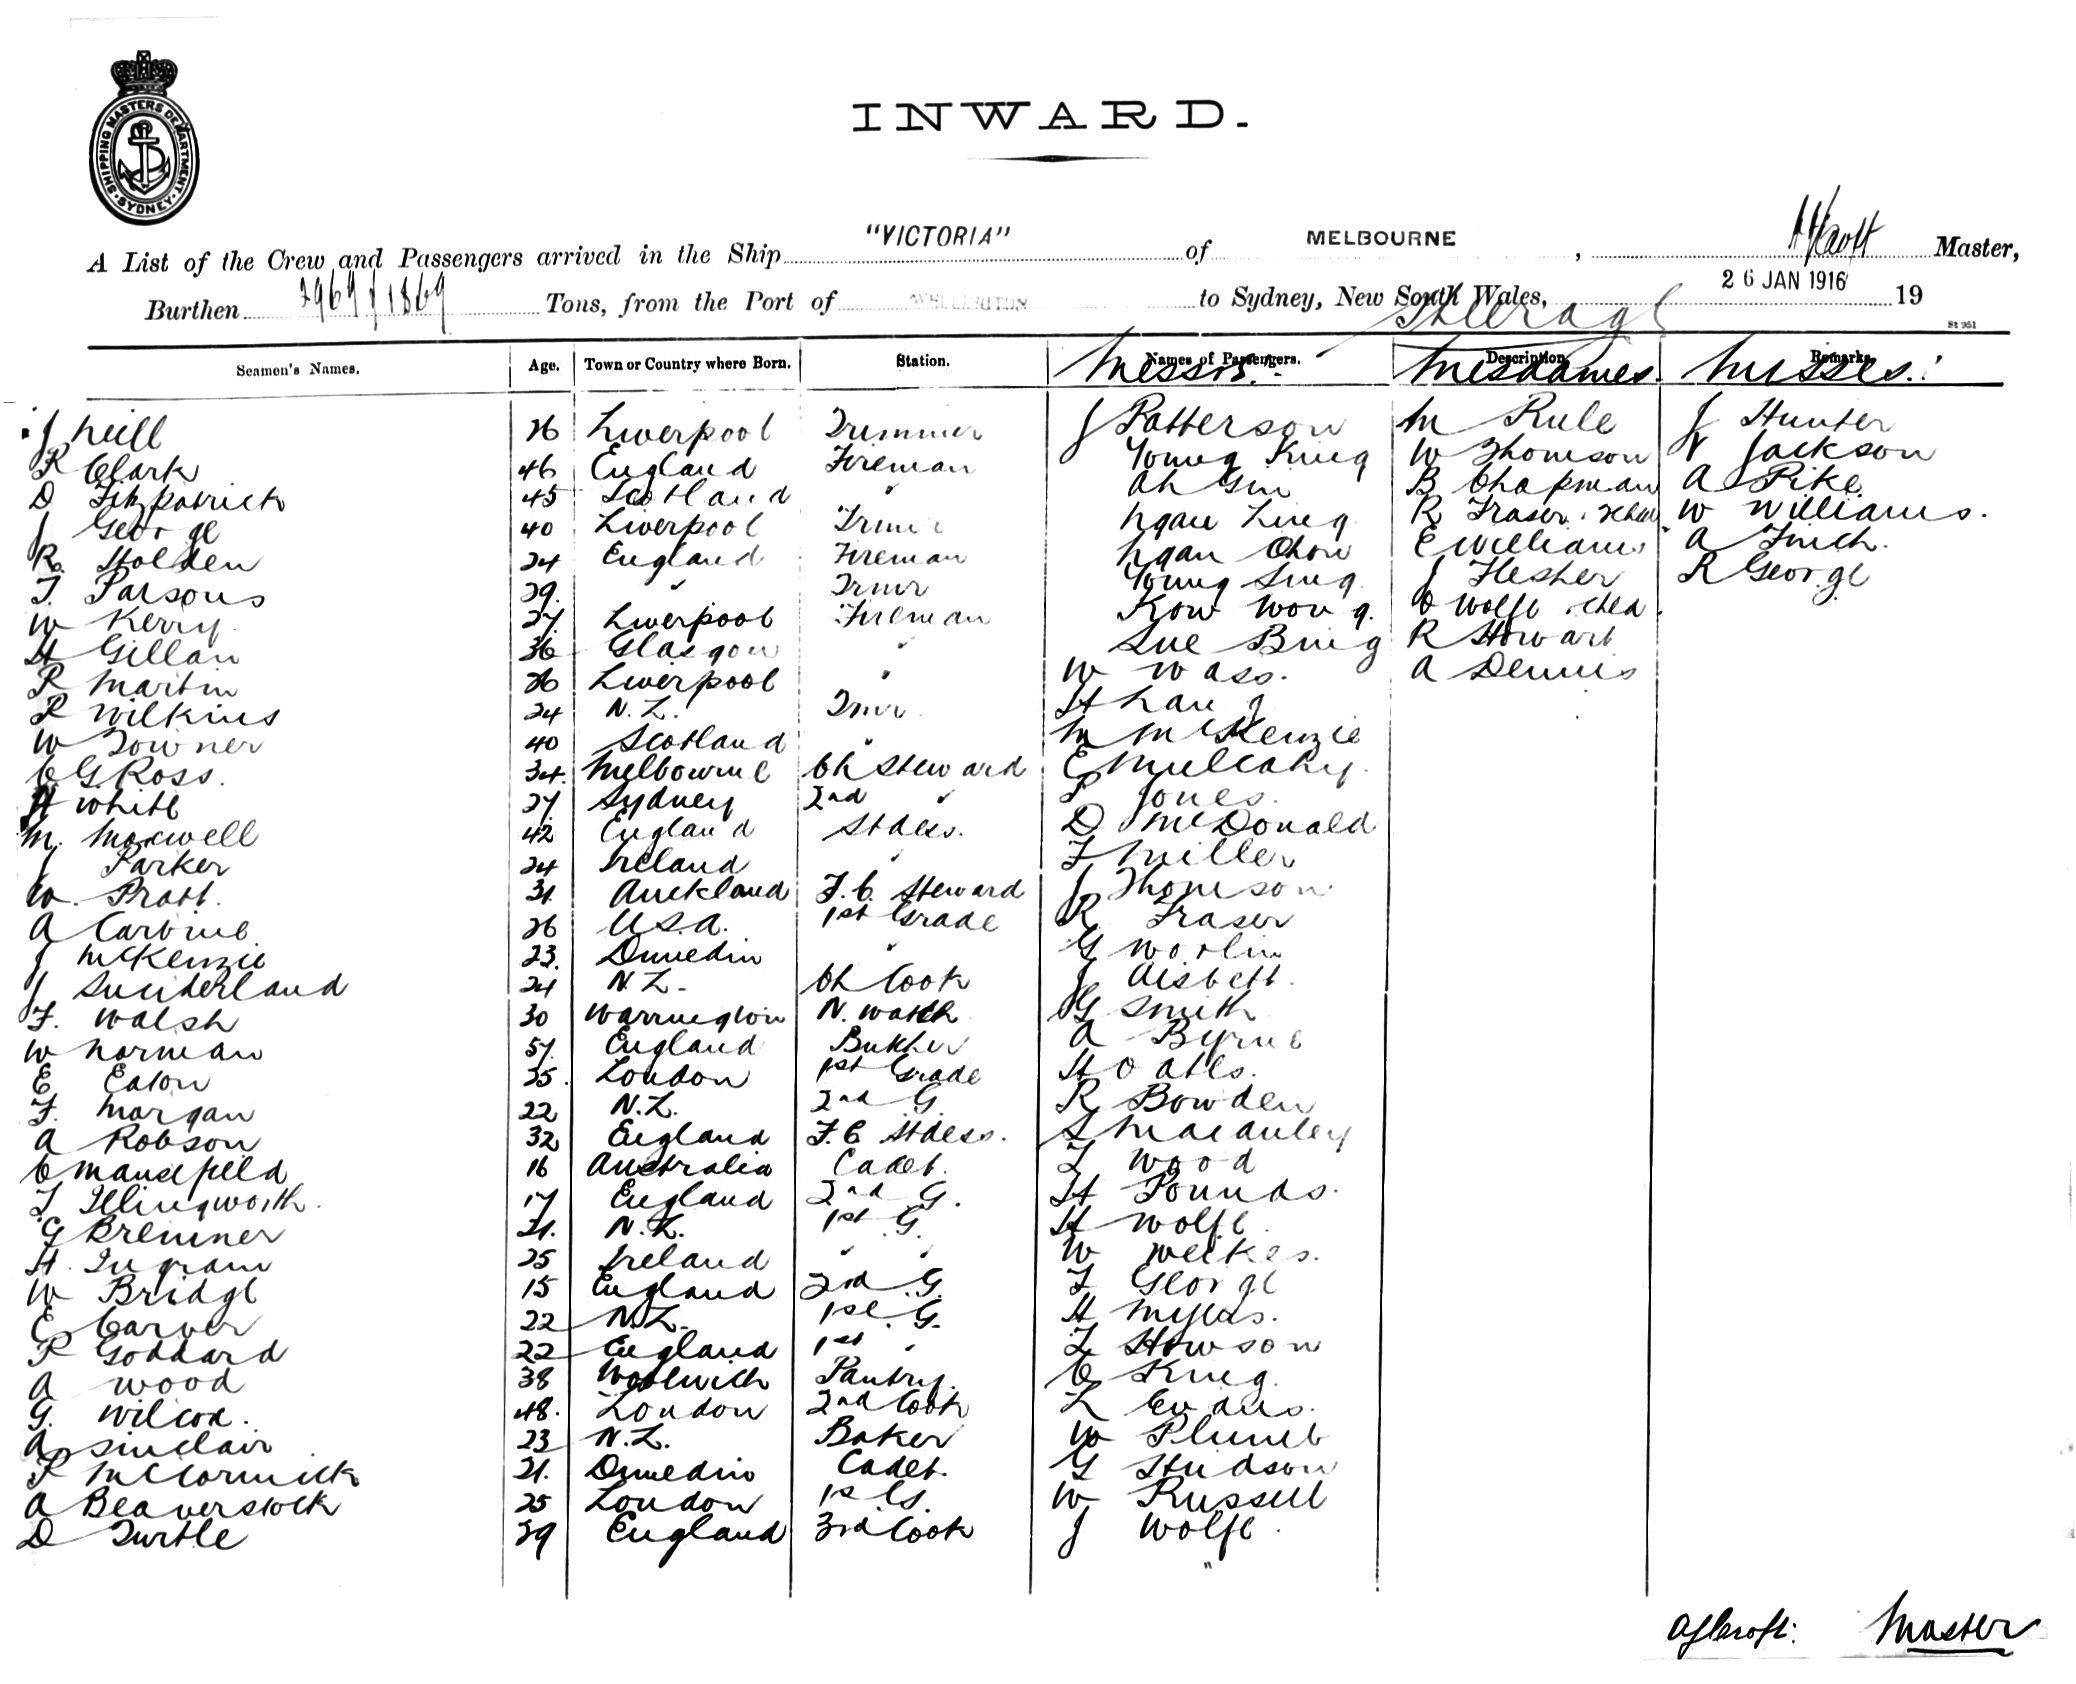 SHIPPING MASTERS DEPARTMENT SYDNEY
INWARD.
A List of the Crew and Passengers arrived in the Ship "VICTORIA" of MELBOURNE, Master,
Burthen 2969/1869 Tons, from the Port of WELLINGTON to Sydney, New South Wales, 26 JAN 1916 19
Steerage
St 951
Seamen's Names. Age. Town or Country where Born. Station. Names of Passengers. Description Remarks
Messrs. Mesdames. Misses.
J Neill 26 Liverpool Trimmer J Patterson M Rule J Hunter
R Clark 46 England Fireman Young King W Thomson V Jackson
D Fitzpatrick 45 Scotland " Ah Gin B Chapman A Pike
J George 40 Liverpool Trmr Ngan Ling R Fraser & child W Williams.
R Holden 24 England Fireman Ngan Chow E Williams A Finch.
T. Parsons 29. " Trmr Young Sing J Flesher R George
W Kerry 27. Liverpool Fireman Kow Wong. C Wolfe child.
H Gillan 36 Glasgow " Sue Bing R Howart
R Martin 26 Liverpool " W Wass. A Dennis
R Wilkins 24 N.Z. Tmr H Lang
W Towner 40 Scotland " M McKenzie
C G Ross. 34. Melbourne Ch Steward E Mulcahy.
H White 27. Sydney 2nd " P Jones.
M. Maxwell 42 England Stdess. D McDonald
J Parker 24 Ireland " F Miller
W. Pratt. 31. Auckland F.C. Steward J Thomson
A Carbine. 26 U.S.A. 1st Grade R Fraser
J McKenzie 23. Dunedin " G Worlin
J Sunderland 24 N.Z. Ch Cook J Aisbett.
F. Walsh 30 Warrington N. Watch G Smith
W Norman 57. England Butcher A Byrne
E Eaton 25. London 1st Grade H Oates.
F. Morgan 22 N.Z. 2nd G R Bowden
A Robson 32 England F.C. Stdess. S Macauley
C Mansfield 16 Australia Cadet. T Wood
T Illingworth. 17 England 2nd G. H Pounds.
G Bremner 21. N.Z. 1st G. H Wolfe
H. Ingram 25 Ireland " " W Weekes.
W Bridge 15 England 2nd G. F George
E Carver 22 N.Z. 1st G. H Myers.
P Goddard 22 England 1st " T Howson
A Wood 38 Woolwich Pantry. C King.
G. Wilcox. 48. London 2nd Cook L Evans.
A Sinclair 23 N.Z. Baker W Plumb
P McCormick 21. Dunedin Cadet. G Hudson
A Beaverstock 25 London 1st Gs. W Russell
D Turtle 29 England 3rd Cook J Wolfe
"
Master